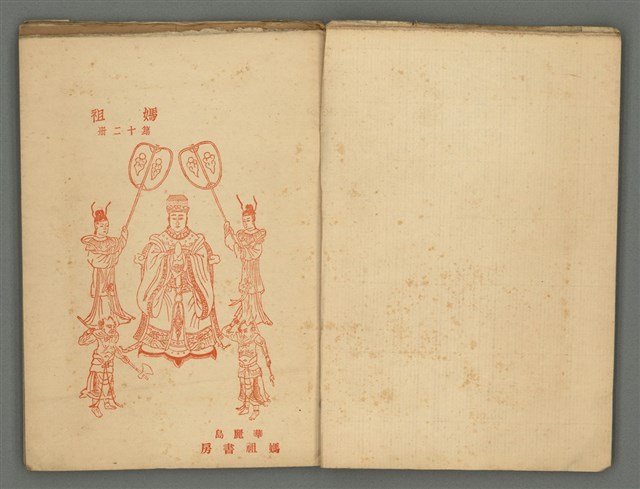 媽祖
第十二冊
華麗島
媽祖書房